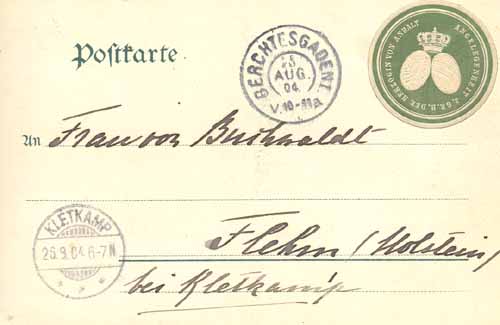 Postkarte
BERCHTESGADEN 1.
25
AUG.
04
V.10-11
ANGELEGENHEIT J. GR. H. DER HERZOGIN VON ANHALT
An Frau von Buchwaldt
KLETKAMP
26.8.04.6-7N
Flehm (Holstein)
bei Kletkamp